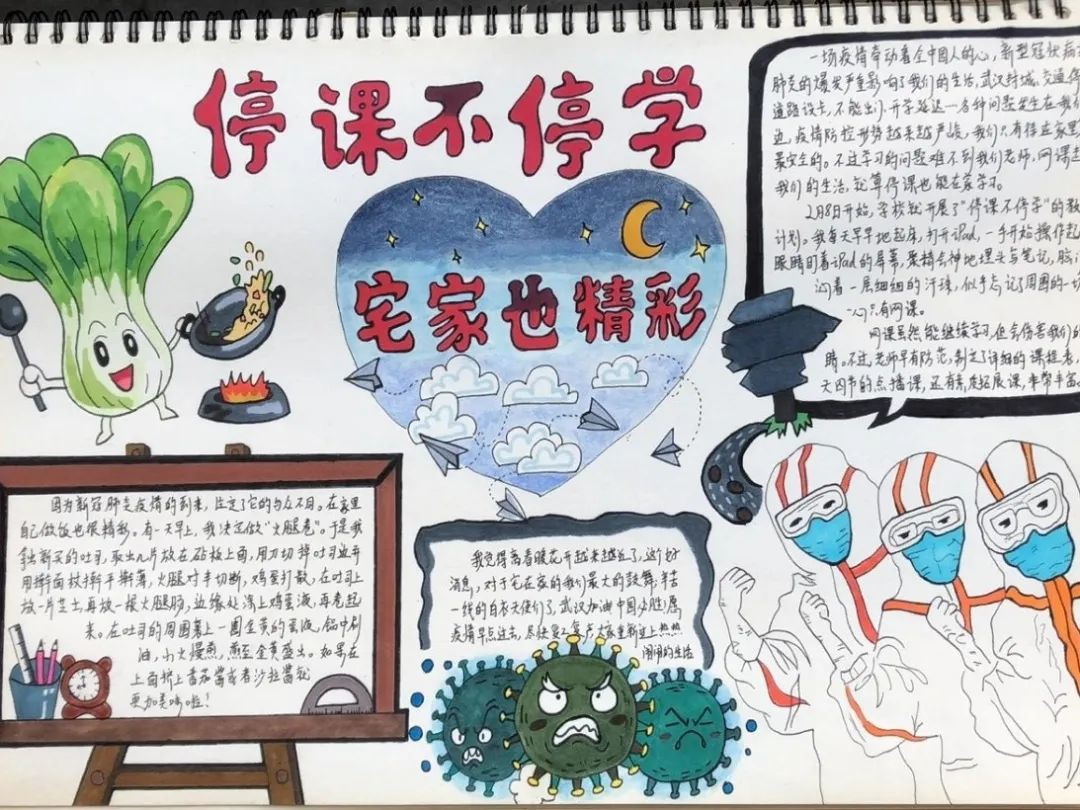 停课不停学
宅家也精彩
一场疫情牵动着全中国人的心,新型冠状病
肺炎的爆发严重影响了我们的生活,武汉封城,交通
道路设卡,不能出门,开学延迟一各种问题发生在我们
边,疫情防控形势越来越严峻,我们只有待在家里
最安全的。不过学习的问题难不到我们老师,网课
我们的生活,就算停课也能在家学习。
2月8日开始,学校就开展了“停课不停学”的教
计划。我每天早早地起床,打开iPad,一手开始操作
眼睛盯着iPad的屏幕,聚精会神地埋头与笔记,脑
着一层细细的汗珠,似乎忘记了周围的一切
心只有网课。
网课虽然能继续学习,但会伤害我们的
睛。不过,老师早有防范,制定了详细的课程表,
天四节的点播课,还有素质拓展课,非常丰富
因为新冠肺炎疫情的到来,注定了它的与众不同。在家里
自己做饭也很精彩。有一天早上,我决定做“火腿卷”。于是我
拿出新买的吐司,取出几片放在砧板上面,用刀切掉吐司边并
用擀面杖擀平擀薄,火腿对半切断,鸡蛋打散,在吐司上
放一片芝士,再放一根火腿肠,边缘处涂上鸡蛋液,再卷起
来。在吐司的周围裹上一圈金黄的蛋液,锅中刷
油,小火慢煎,煎至金黄盛出。如果在
上面挤上番茄酱或者沙拉酱就
更加美味啦!
我觉得离春暖花开越来越近了,这个好
消息,对于宅在家的我们最大的鼓舞,辛苦
一线的白衣天使们了,武汉加油中国必胜!愿
疫情早点过去,尽快复工复产,大家重新过上热热
闹闹的生活